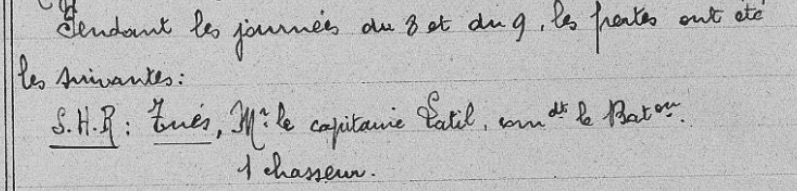 Pendant les journées du 8 et du 9, les pertes ont été
les suivantes:
S.H.R: Tués, Mr le capitaine Latil, comdt le Baton.
1 chasseur.